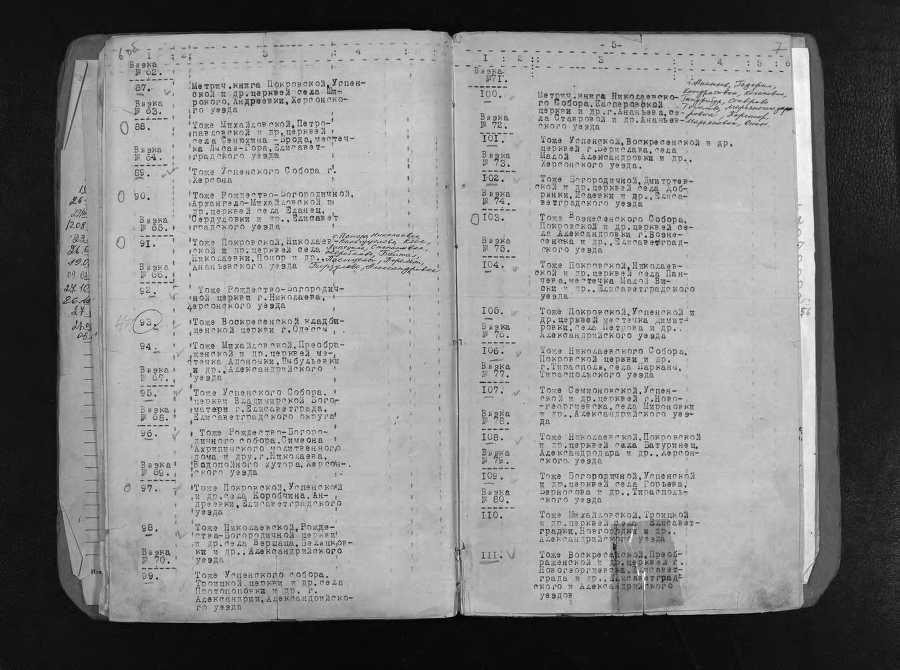 6об
I : 2: 3 4
Вязка
№ 62.
87. Метрич.книга Покровской,Успен-
ской и др.церквей села Ши-
рокого,Андреевки,Херсонско-
го уезда
Вязка
№ 63.
88. Тоже Михайловской,Петро-
павловской и др.церквей
села Сенюхина -Брода,местеч-
ка Лысая-Гора,Елисавет-
градского уезда
Вязка
№ 64.
89. Тоже Успенского Собора г.
Херсона
90. Тоже Рождество-Богородичной,
Архангело-Михайловской и
др.церквей села Еланец,
Сердуловки и др.,Елисавет
градского уезда
Вязка
№ 65.
91. Тоже Покровской,Николаев-
ской и др.церквей села
Николаевки, и др.,
Ананьевского уезда
Вязка
№ 66.
92. Тоже Рождество-Богородич-
ной церкви г.Николаева,
Херсонского уезда
93. Тоже Воскресенской кладби-
щенской церкви г.Одессы
94. Тоже Михайловской,Преобра-
женской и др.церквей ме-
течка Адоновки,Цыбульевки
и др.,Александрийского
уезда
Вязка
№ 67.
95. Тоже Успенского Собора,
церкви Владимирской Бого-
матери г.Елисаветграда,
Елисаветградского округа
Вязка
№ 68.
96. Тоже Рождество-Богоро-
дичного собора,Симеона
молитвенного
дома и др.г.Николаева,
Водопойного хутора,Херсон-
ского уезда
Вязка
№ 69.
97. Тоже Покровской,Успенской
и др.села Коробчина,Ан-
древки,Елисаветградского
уезда
98. Тоже Николаевской,Рожде-
ства-Богородичной церкви
и др.села Вершаца,
ки и др.,Александрийского
уезда
Вязка
№ 70.
99. Тоже Успенского собора,
Троицкой церкви и др.села
Протопоповки и др. г.
Александрии,Александрийско-
го уезда
-5- 7
I : 2: 3 : 4 : 5 : 6
Вязка
№71.
100. Метрич.книга Николаевско-
го Собора,Касперовской
церкви и др.г.Ананьева,се-
ла Ставровой и др.Ананьев-
ского уезда
Вязка
№ 72.
101. Тоже Успенской,Воскресенской и др.
церквей г.Берислава,села
Малой Александровки и др.,
Херсонского уезда.
Вязка
№ 73.
102. Тоже Богородичной,Дмитриев-
ской и др.церквей села Доб-
рянки,Исаевки и др.,Елиса-
ветградского уезда
Вязка
№ 74.
103. Тоже Вознесенского Собора,
Покровской и др.церквей се-
ла Александровки г.Возне-
сенска и др.,Елисаветград-
ского уезда
Вязка
№ 75.
104. Тоже Покровской,Николаев-
ской и др.церквей села Пан-
чева,местечка Малой Ви-
ски и др.,Елисаветградского
уезда
105. Тоже Покровской,Успенской и
др.церквей местечка Димит-
ровки,села Петрова и др.,
Александрийского уезда
Вязка
№ 76.
106. Тоже Николаевского Собора,
Покровской церкви и др.
г.Тирасполь,села Паркани,
Тираспольского уезда
Вязка
№ 77.
107. Тоже Семионовской,Успен-
ской и др.церквей г.Ново-
георгиевска,села Мироновки
и др.,Александрийского уез-
да
Вязка
№ 78.
108. Тоже Николаевской,Покровской
и др.церквей села Батуринец,
Александродара и др.,Херсон-
ского уезда
Вязка
№ 79.
109. Тоже Богородичной,Успенской
и др.церквей села Горьева,
Бериосова и др.,Тирасполь-
ского уезда
Вязка
№ 80.
110. Тоже Михайловской,Троицкой
и др.церквей села Елисавет-
градки, и др.,
Александрийского уезда
111. Тоже Воскресенской,Преоб-
раженской и др.церквей г.
Новогеоргиевска,Елисавет-
града и др.,Елисаветград-
ского и Александрийского
уездов